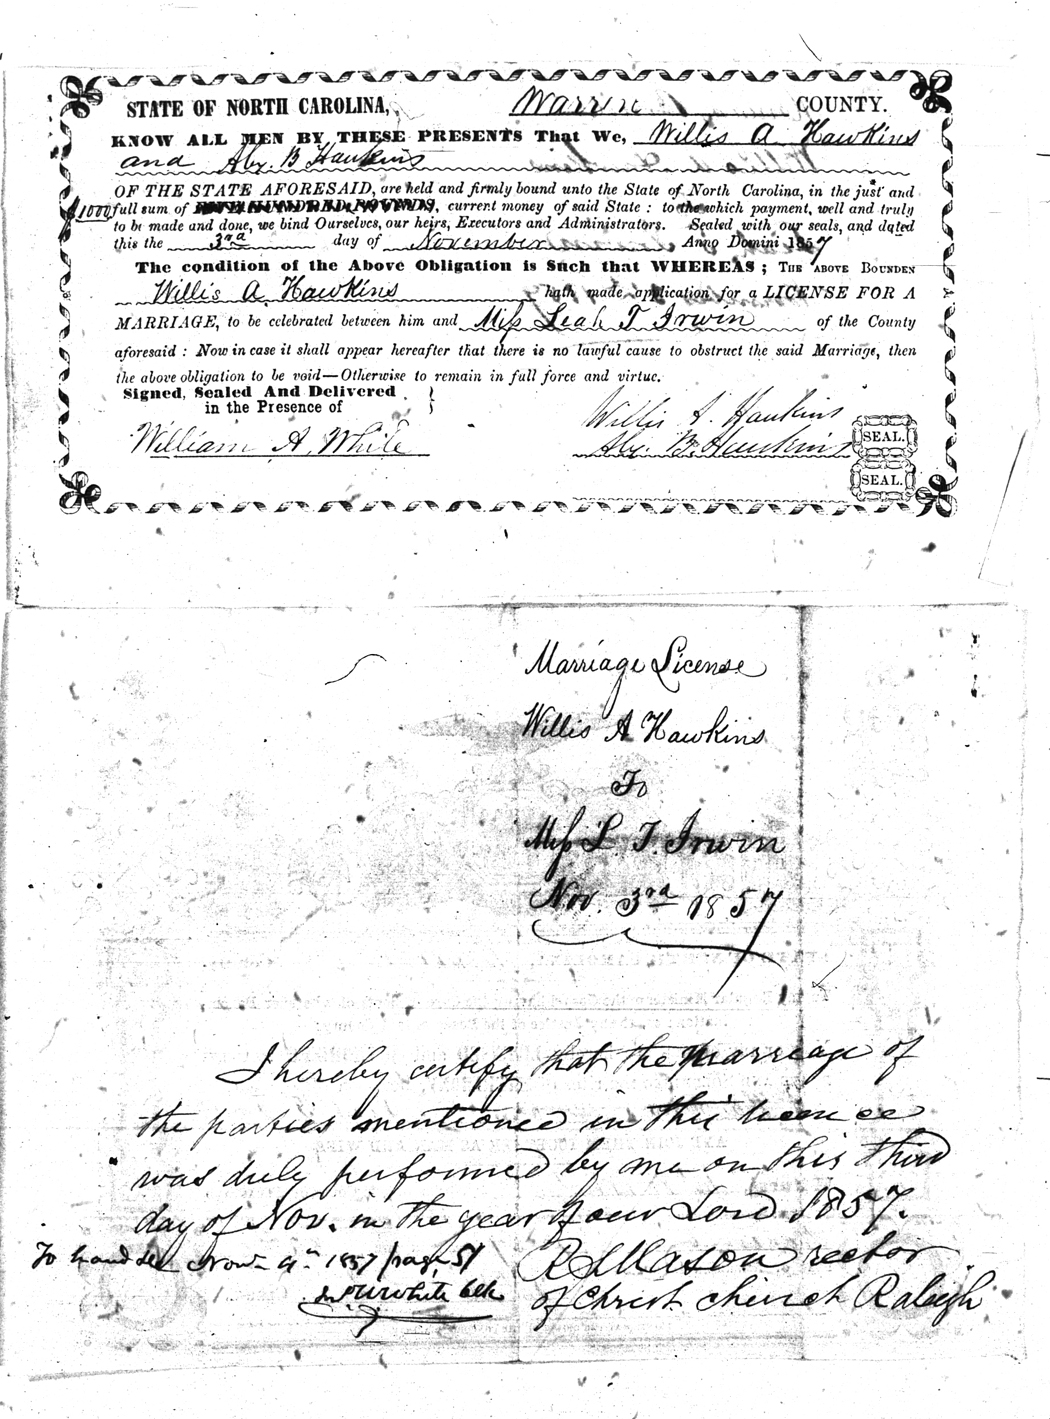 STATE OF NORTH CAROLINA, Warren COUNTY.
KNOW ALL MEN BY THESE PRESENTS That We, Willis A Hawkins
and Alex. B Hawkins
OF THE STATE AFORESAID, are held and firmly bound unto the State of North Carolina, in the just and
$1000 full sum of FIVE HUNDRED POUNDS, current money of said State : to the which payment, well and truly
to be made and done, we bind Ourselves, our heirs, Executors and Administrators. Sealed with our seals, and dated
this the 3rd day of November Anno Domini 1857
The condition of the Above Obligation is Such that WHEREAS ; THE ABOVE BOUNDEN
Willis A. Hawkins hath made application for a LICENSE FOR A
MARRIAGE, to be celebrated between him and Miss Leah T Irwin of the County
aforesaid : Now in case it shall appear hereafter that there is no lawful cause to obstruct the said Marriage, then
the above obligation to be void—Otherwise to remain in full force and virtue.
Signed, Sealed And Delivered
in the Presence of
William A. White
Willis A. Hawkins
Alex. B. Hawkins
SEAL.
SEAL.
Marriage License
Willis A Hawkins
To
Miss L. T. Irwin
Nov. 3rd 1857
I hereby certify that the marriage of
the parties mentioned in this licence
was duly performed by me on this third
day of Nov. in the year of our Lord 1857.
R S Mason rector
of Christ church Raleigh
To hand Nov 9th 1857 page 51
White Clk